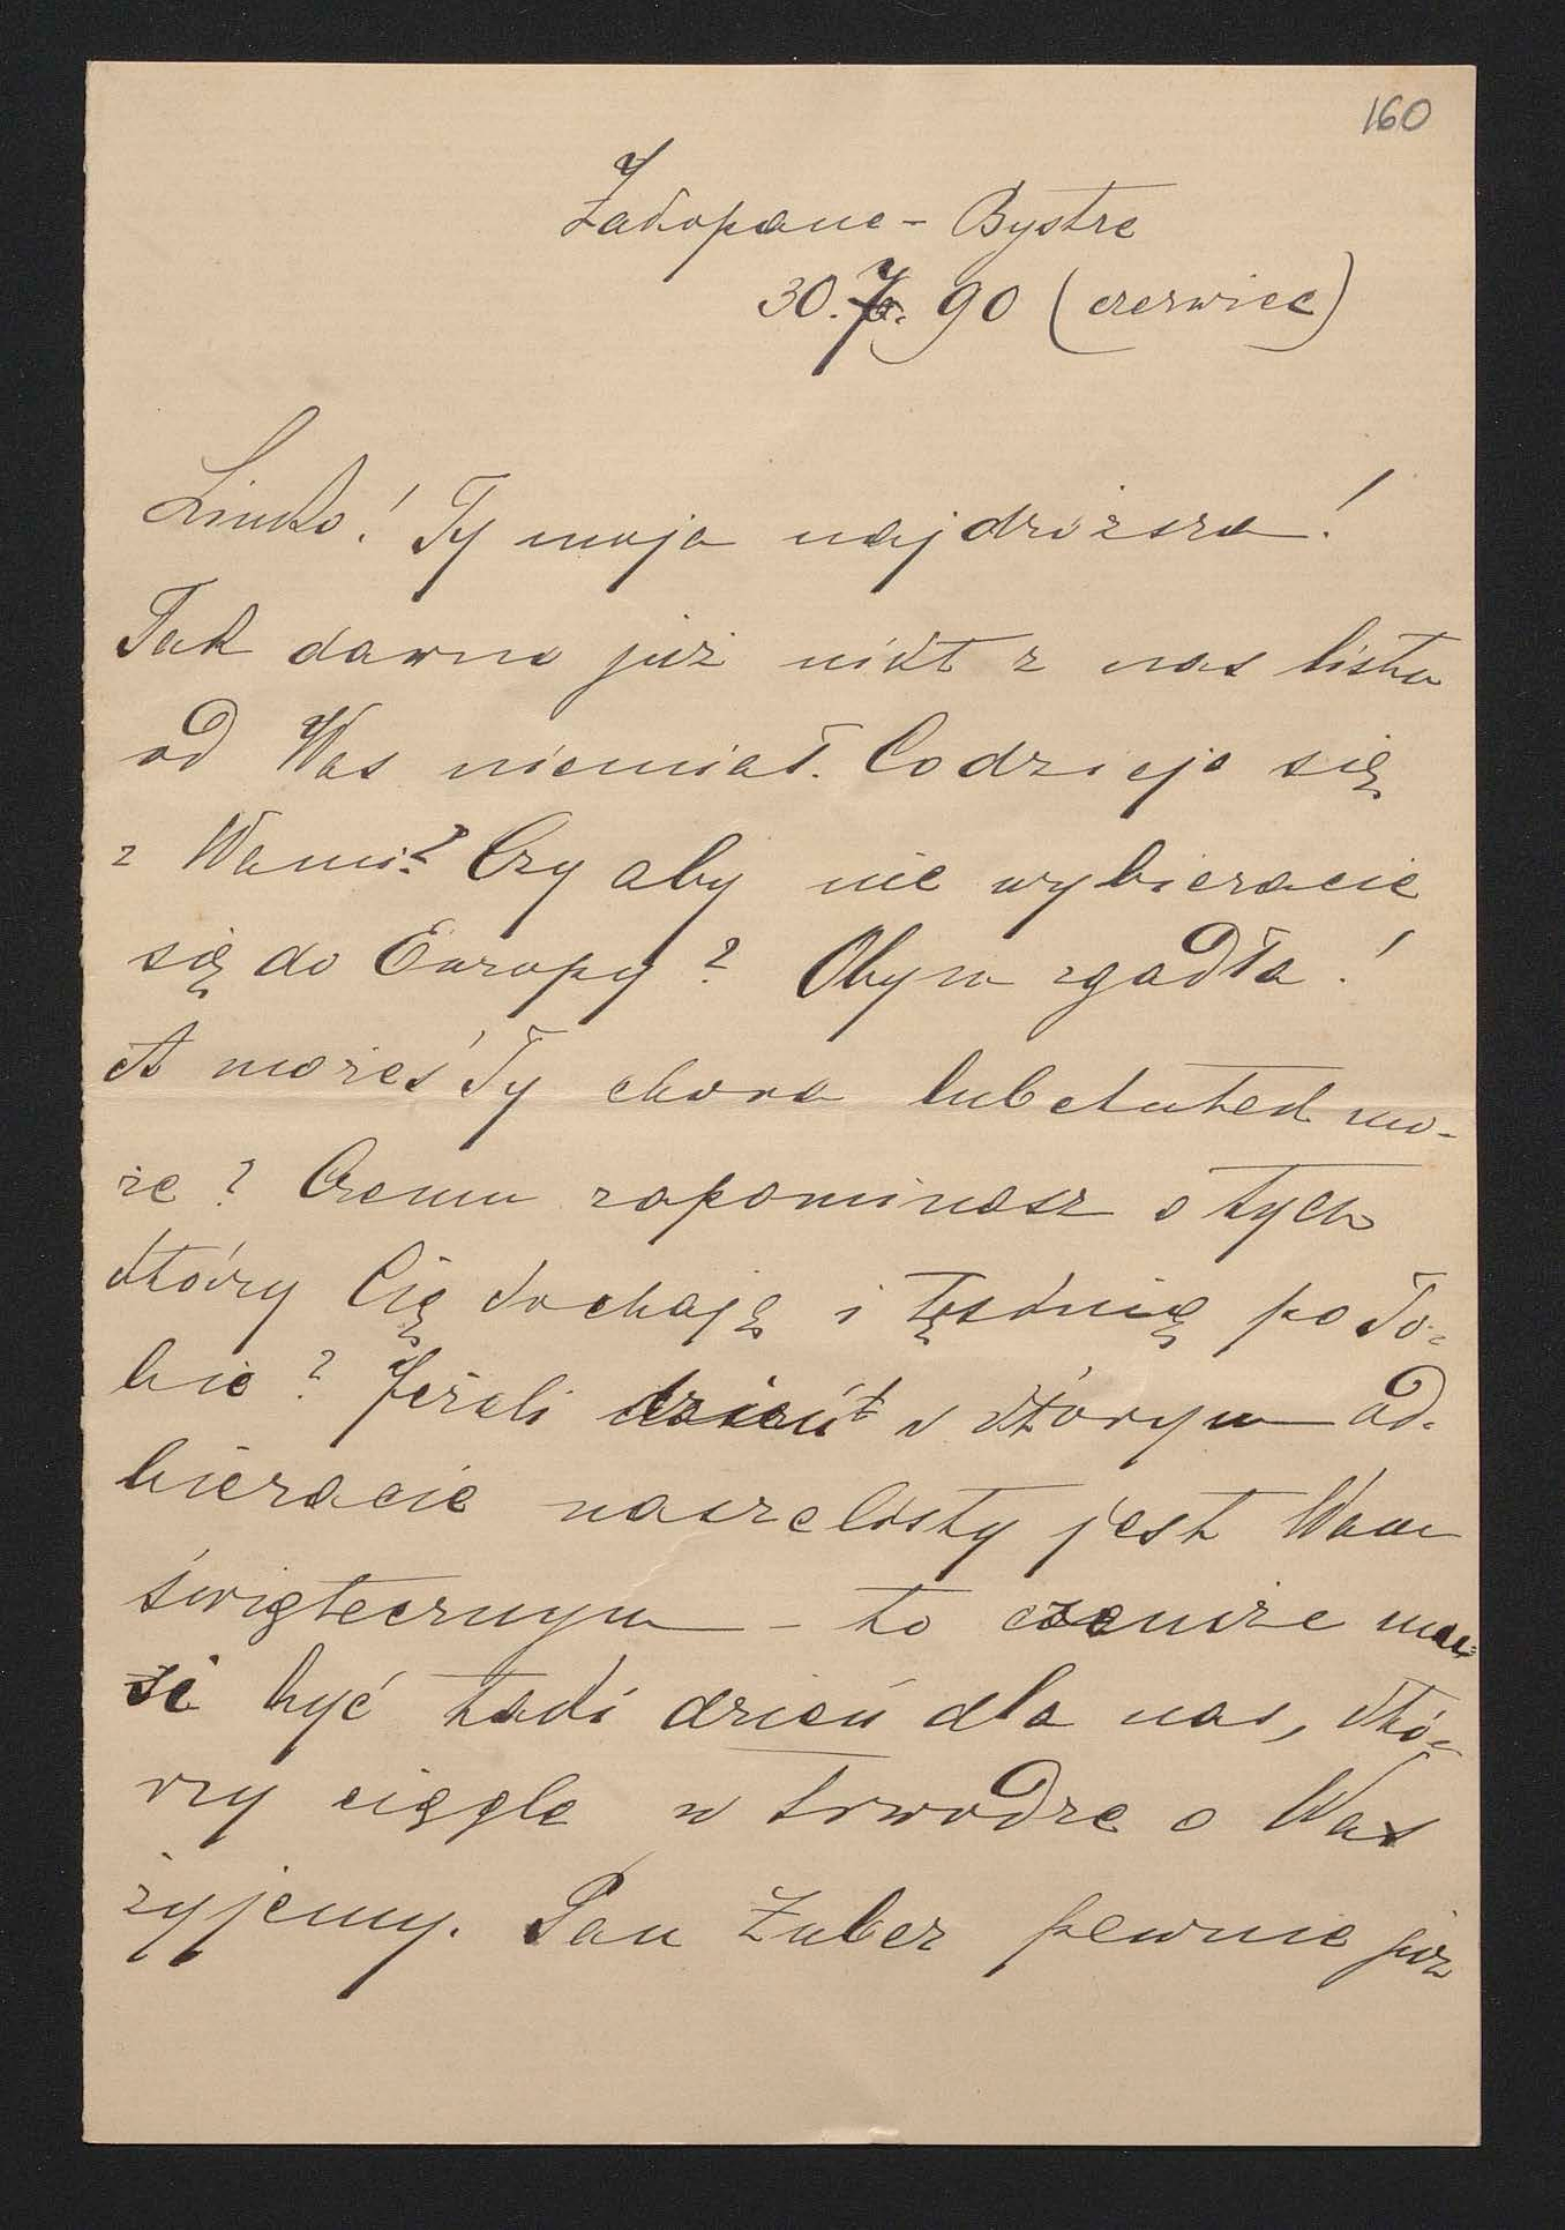 160
Zakopane - Bystre
30. 7. 90 (czerwiec)
Linko! Ty moja najdroższa!
Tak dawno już nikt z nas listu
od Was niemiał. Co dzieje się
z Wami? Czy aby nie wybieracie
się do Europy? Obym zgadła!
A możeś Ty chora lub Antek mo-
że? Czemu zapominasz o tych
którzy Cię kochają i tęsknią po To-
bie? Jeżeli dzień w którym od-
bieracie nasze listy jest Wam
świątecznym - to czemże mu-
si być taki dzień dla nas, któ-
rzy ciągle w trwodze o Was
żyjemy. Pan Zuber pewnie już